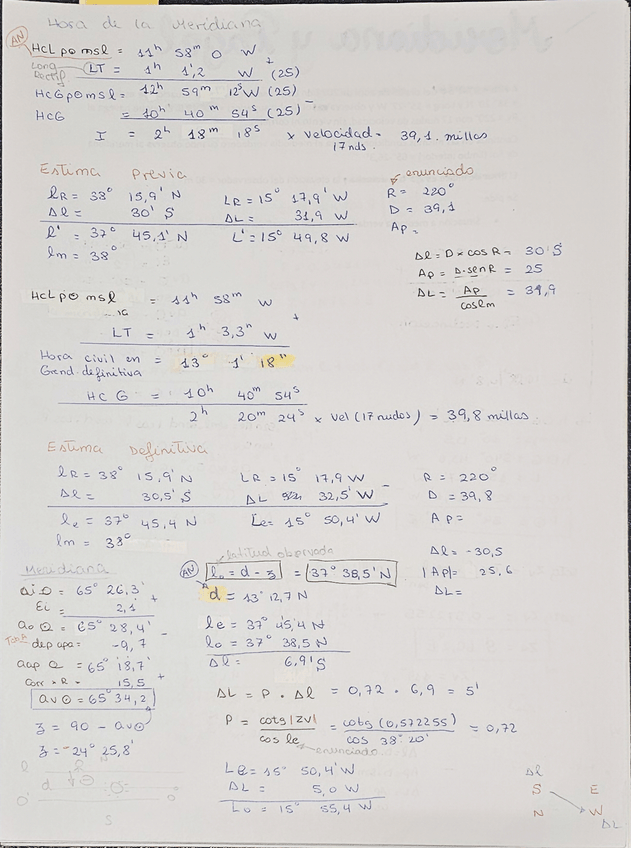 Hora de la Meridiana
AN
HcL po msl = 11h 58m 0 W
Long Rectif LT = 1h 1',2 W + (25)
HcG po msl = 12h 59m 12s W (25)
HcG = 10h 40m 54s (25) -
I = 2h 18m 18s x velocidad = 39,1 millas
17nds.
Estima Previa
lR = 38° 15,9' N LR = 15° 17,9' W
Δl = 30' S ΔL = 31,9 W
l' = 37° 45,1' N L' = 15° 49,8 W
lm = 38°
enunciado
R = 220°
D = 39,1
Ap =
Δl = D x cos R = 30 S
Ap = D.sen R = 25
ΔL = Ap / cos lm = 31,9
HcL po msl = 11h 58m W
LT = 1h 3,3m W +
Hora civil en Grend. definitiva = 13° 1' 18"
HcG = 10h 40m 54s
2h 20m 24s x vel (17 nudos) = 39,8 millas
Estima Definitiva
lR = 38° 15,9' N LR = 15° 17,9 W
Δl = 30,5' S ΔL 32,5' W
le = 37° 45,4 N Le = 15° 50,4' W
lm = 38°
R = 220°
D = 39,8
Ap =
Δl = -30,5
|Ap| = 25,6
ΔL =
Meridiana
ai⊙ = 65° 26,3'
Ei = 2,1' +
ao⊙ = 65° 28,4'
Tabla dep apa = -9,7 -
aap ⊙ = 65° 18,7'
Corr x R = 15,5 +
av⊙ = 65° 34,2
z = 90 - av⊙
z = -24° 25,8'
latitud observada
AN lo = d - z = 37° 38,5' N
d = 13° 12,7 N
le = 37° 45,4 N
lo = 37° 38,5 N
Δl = 6,9' S
ΔL = P . Δl = 0,72 . 6,9 = 5'
P = cotg |Zv| / cos le = cotg (0,572255) / cos 38° 20' = 0,72
enunciado
Le = 15° 50,4' W
ΔL = 5,0 W
Lo = 15° 55,4 W
Δl
S E
N W
ΔL